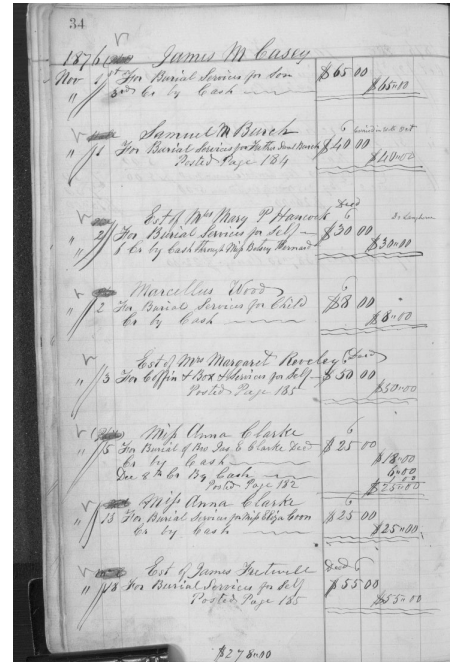 34
1876 James M Casey
Nov 1st For Burial Services for Son $65 00
" 3rd Cr by Cash $65=00
Samuel M Burch
" 1 For Burial Services for Father Saml Burch $40 00
Posted Page 184 $40=00
Est of Mrs Mary P Hancock Decd
" 2 For Burial Services for Self $30 00
6 Cr by Cash through Miss Betsey $30=00
Marcellus Wood
" 2 For Burial Services for Child $8 00
Cr by Cash $8=00
Est of Mrs Margaret Reveley Decd
" 3 For Coffin & Box & Services for Self $50 00
Posted Page 185 $50=00
Miss Anna Clarke
" 5 For Burial of Mrs Jas. E Clarke Decd $25 00
Cr by Cash $18=00
Dec 8th Cr By Cash 6=00
Posted Page 182 $25=00
Miss Anna Clarke
" 15 For Burial Services for Miss Eliza Coon $25 00
Cr by Cash $25=00
Est of James Fretwell Decd
" 18 For Burial Services for Self $55 00
Posted Page 185 $55=00
$278=00